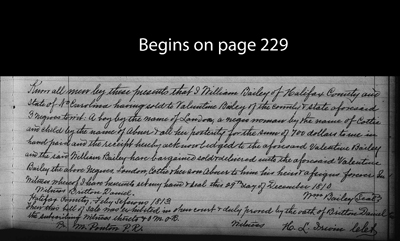 Begins on page 229
Know all men by these presents that I William Bailey of Halifax County and
State of No Carolina having sold to Valentine Bailey of the county & state aforesaid
3 Negroes to wit: A boy by the name of London, a negro woman by the name of Cottie
and child by the name of Abner & all her posterity for the sum of 700 dollars to me in
hand paid and the receipt hereby acknowledged to the aforesaid Valentine Bailey
and the said William Bailey have bargained sold & delivered unto the aforesaid Valentine
Bailey the above Negroes London Cottie her son Abner to him his heirs & assigns forever In
witness whereof I have hereunto set my hand & seal this 29th day of December 1812
Witness Britton Daniel Wm Bailey Seal
Halifax County Feby Sessions 1813
Then this bill of Sale was exhibited in open court & duly proved by the oath of Britton Daniel
the subscribing witness
M. Ponton P.R. Witness